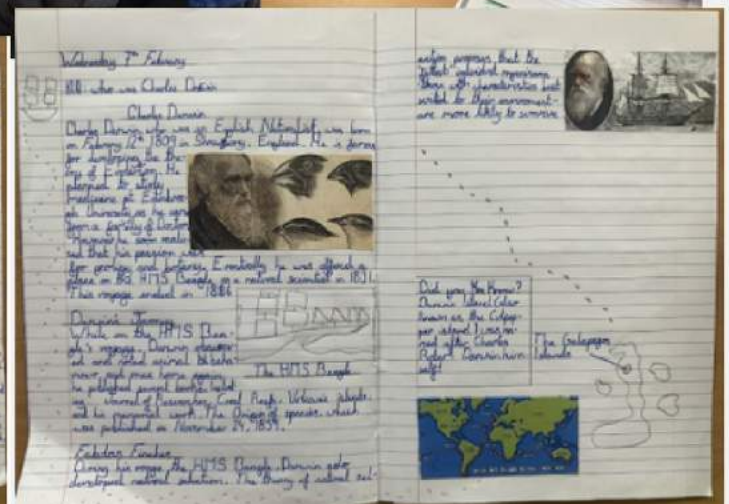 Wednesday 7th February
who was Charles Darwin
Charles Darwin
Charles Darwin, who was an English Naturalist, was born
on February 12th 1809 in Shrewsbury, England. He is famous
for developing the the-
ory of Evolution. He
planned to study
medicine at Edinbur-
gh University as he came
from a family of Doctors
However he soon reali-
sed that his passion was
for and he was offered a
place on the HMS Beagle, as a natural scientist in 1831.
This voyage ended in 1836
Darwin's Journey
While on the HMS Bea-
gle's voyage, Darwin
ed and noted animal
and once home again,
he published several books
Journal of Researches, Coral Reefs, Volcanic
and his personal work, The Origin of species, which
was published on November 24, 1859.
The HMS Beagle
Finches
During his voyage, the HMS Beagle, Darwin
developed natural The theory of natural sel-
ection proposes that the
individual organisms
with characteristics best
suited to their environment
are more likely to survive
Did you Know?
Darwin Island (also
known as the Culpep-
per island) was na-
med after Charles
Robert Darwin him
self!
The Galapagos
Islands